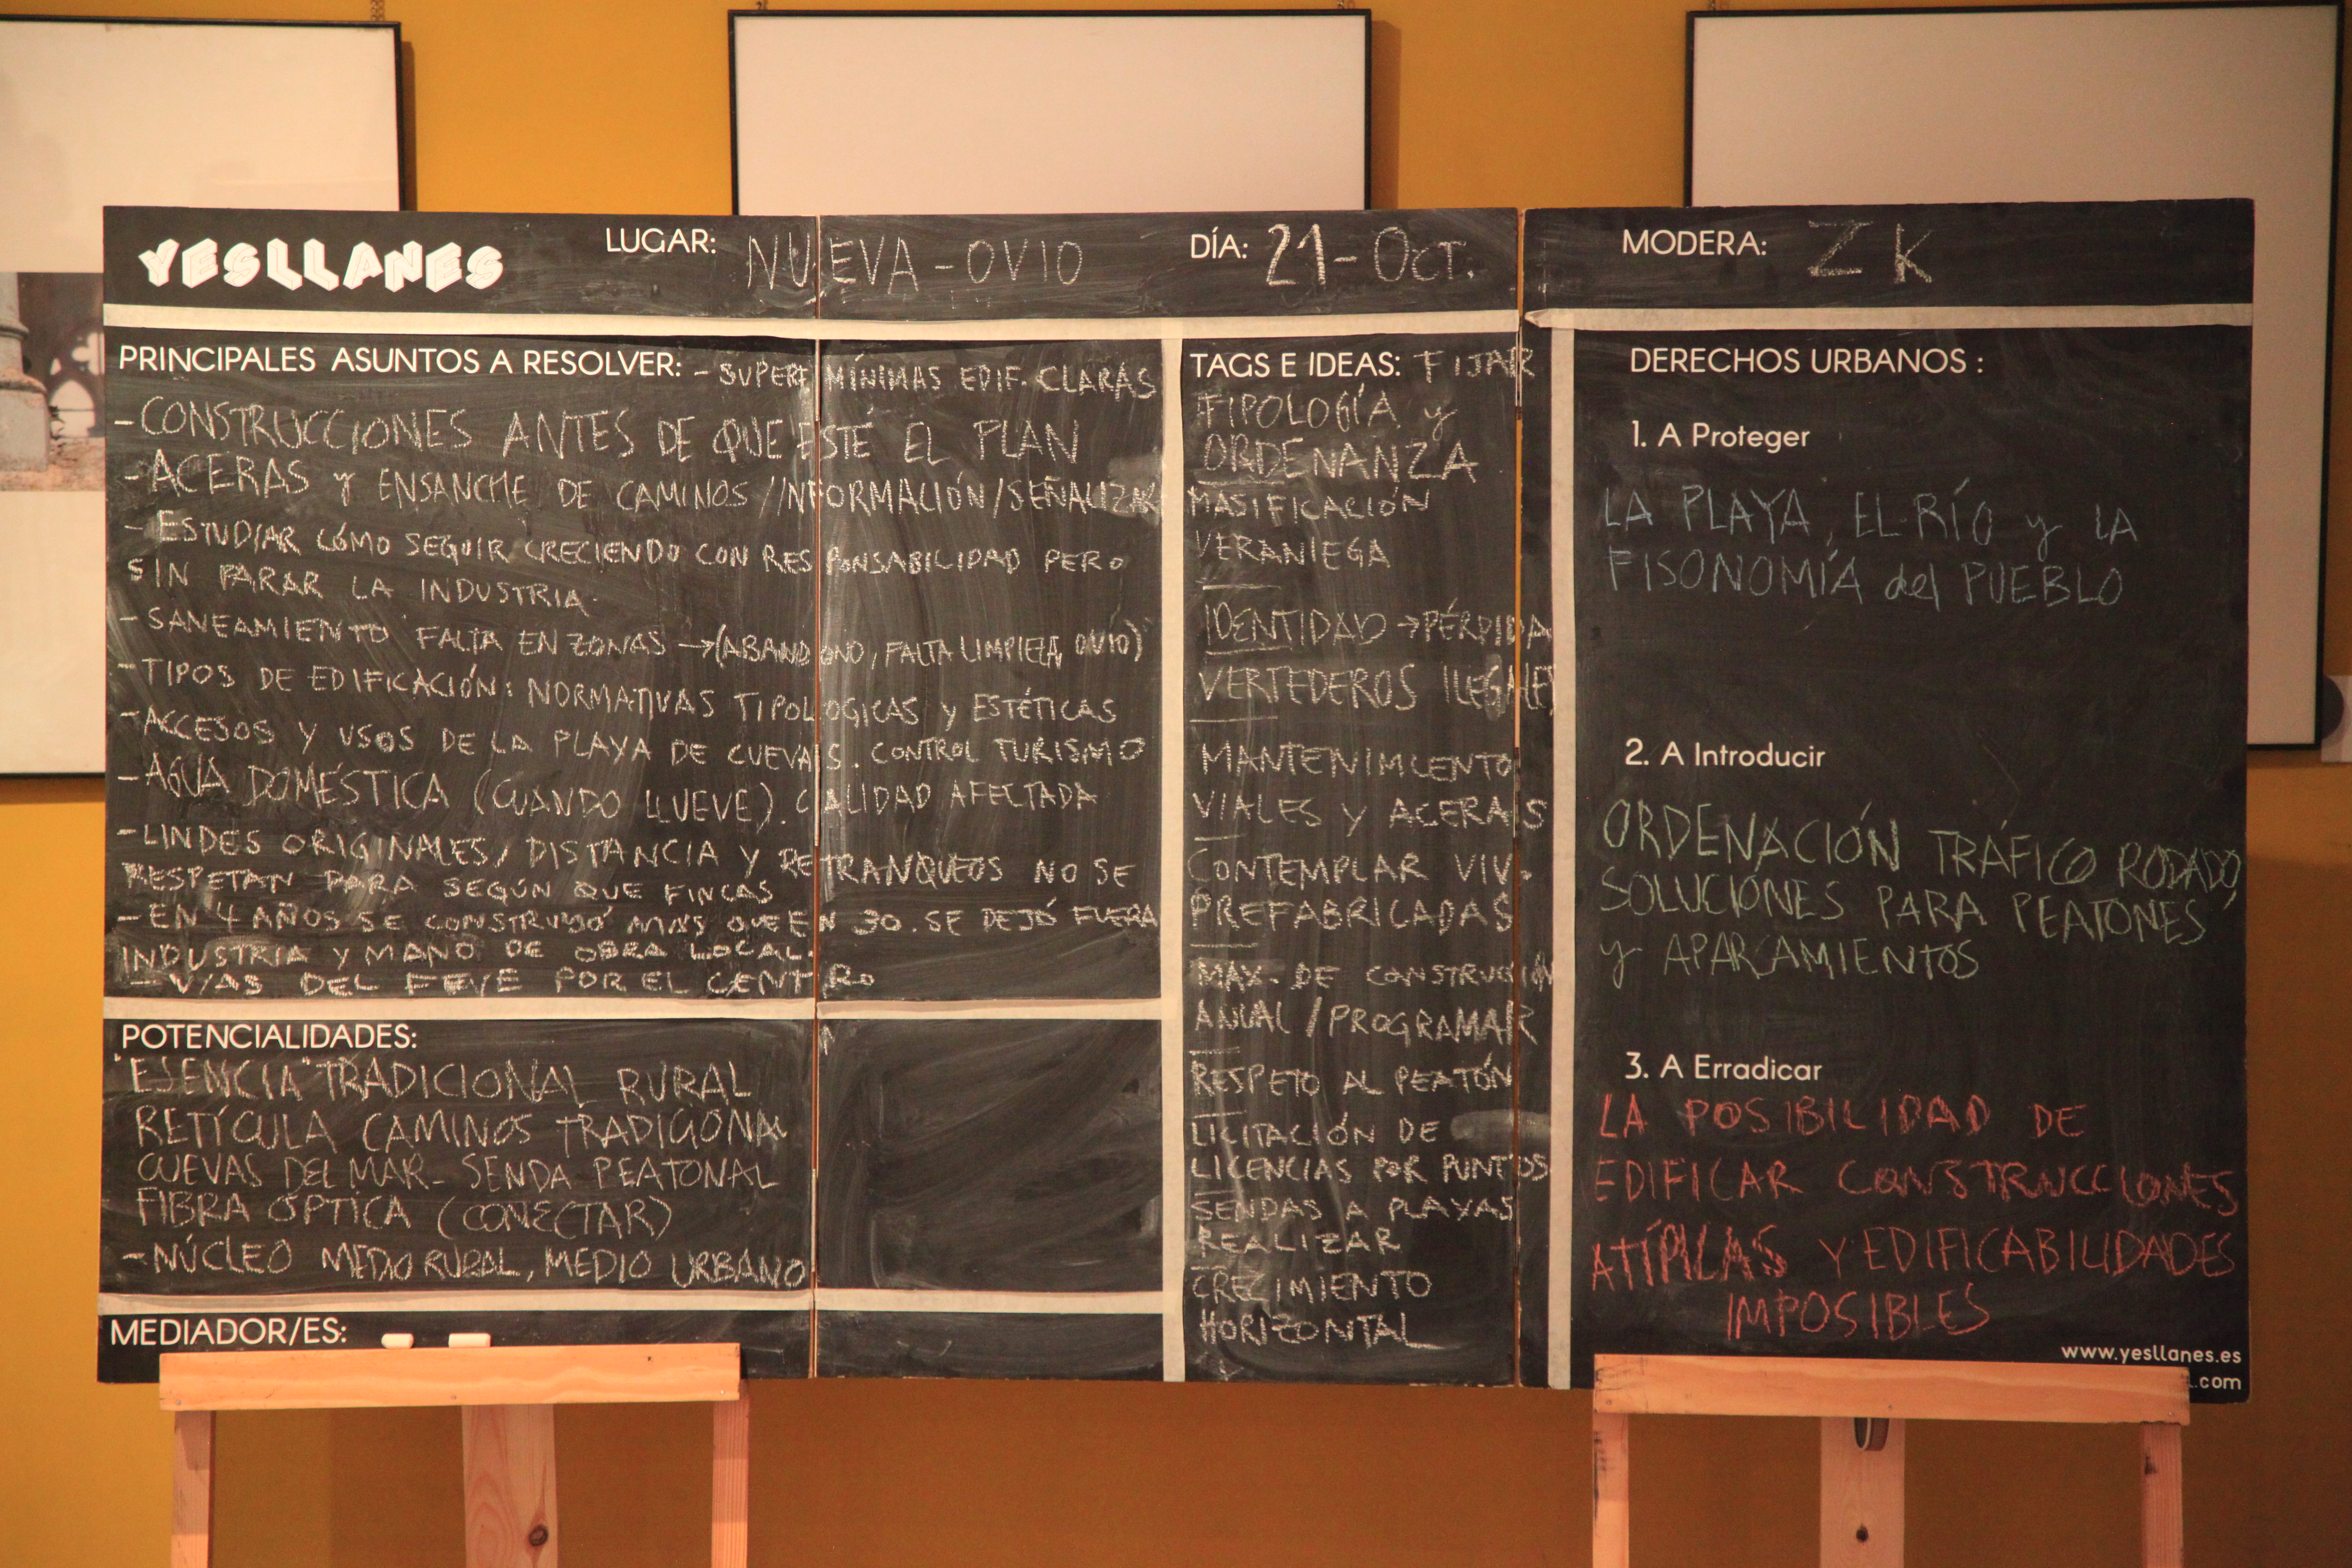 YESLLANES
LUGAR: NUEVA - OVIO
DÍA: 21 - OCT.
MODERA: ZK
PRINCIPALES ASUNTOS A RESOLVER: - SUPERF MÍNIMAS EDIF. CLARAS
- CONSTRUCCIONES ANTES DE QUE ESTÉ EL PLAN
- ACERAS y ENSANCHE DE CAMINOS / INFORMACIÓN / SEÑALIZAR
- ESTUDIAR CÓMO SEGUIR CRECIENDO CON RESPONSABILIDAD PERO
SIN PARAR LA INDUSTRIA.
- SANEAMIENTO FALTA EN ZONAS → (ABANDONO, FALTA LIMPIEZA, OVIO)
- TIPOS DE EDIFICACIÓN: NORMATIVAS TIPOLOGICAS y ESTÉTICAS
- ACCESOS Y USOS DE LA PLAYA DE CUEVAS. CONTROL TURISMO
- AGUA DOMÉSTICA (CUANDO LLUEVE). CALIDAD AFECTADA
- LINDES ORIGINALES, DISTANCIA Y RETRANQUEOS NO SE
RESPETAN PARA SEGÚN QUE FINCAS
- EN 4 AÑOS SE CONSTRUYÓ MÁS QUE EN 30. SE DEJÓ FUERA
INDUSTRIA Y MANO DE OBRA LOCAL.
- VÍAS DEL FEVE POR EL CENTRO
POTENCIALIDADES:
"ESENCIA" TRADICIONAL RURAL
RETÍCULA CAMINOS TRADICIONAL
CUEVAS DEL MAR - SENDA PEATONAL
FIBRA ÓPTICA (CONECTAR)
- NÚCLEO MEDIO RURAL, MEDIO URBANO
MEDIADOR/ES:
TAGS E IDEAS: FIJAR
TIPOLOGÍA y
ORDENANZA
MASIFICACIÓN
VERANIEGA
IDENTIDAD → PÉRDIDA
VERTEDEROS ILEGALES
MANTENIMIENTO
VIALES Y ACERAS
CONTEMPLAR VIV.
PREFABRICADAS
MAX. DE CONSTRUCCIÓN
ANUAL / PROGRAMAR
RESPETO AL PEATÓN
LICITACIÓN DE
LICENCIAS POR PUNTOS
SENDAS A PLAYAS
REALIZAR
CRECIMIENTO
HORIZONTAL
DERECHOS URBANOS :
1. A Proteger
LA PLAYA, EL RÍO y LA
FISONOMÍA del PUEBLO
2. A Introducir
ORDENACIÓN TRÁFICO RODADO,
SOLUCIONES PARA PEATONES
y APARCAMIENTOS
3. A Erradicar
LA POSIBILIDAD DE
EDIFICAR CONSTRUCCIONES
ATÍPICAS Y EDIFICABILIDADES
IMPOSIBLES
www.yesllanes.es
.com